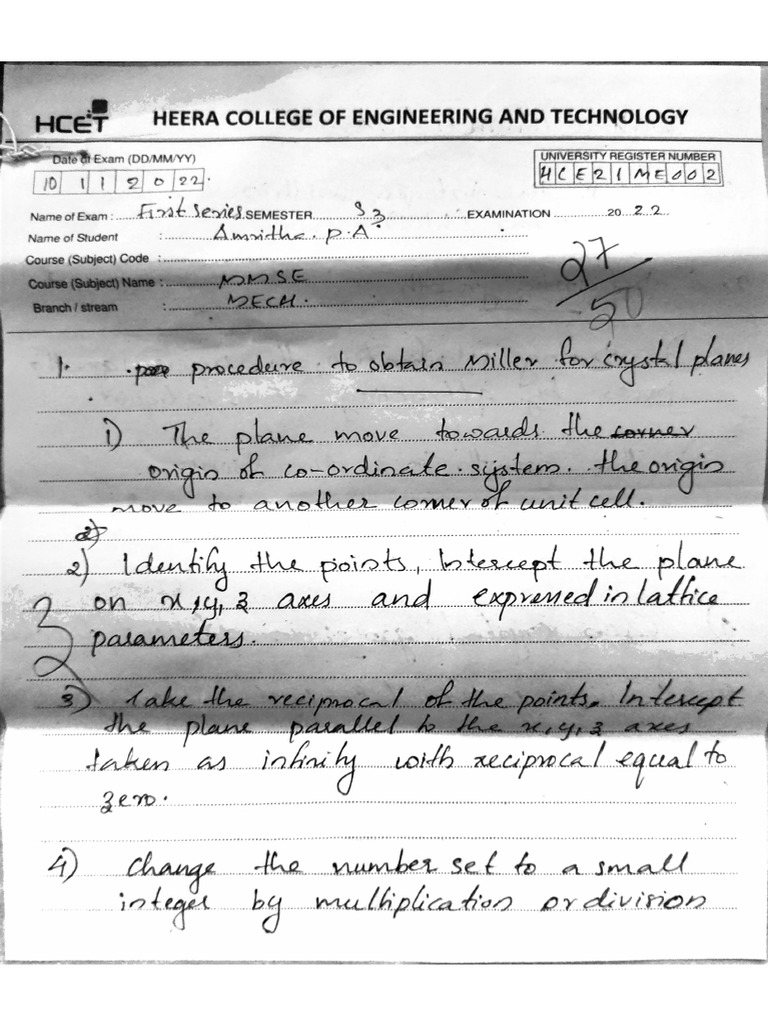 HCET HEERA COLLEGE OF ENGINEERING AND TECHNOLOGY
Date of Exam (DD/MM/YY)
UNIVERSITY REGISTER NUMBER
10 11 2022.
HCE21ME002
Name of Exam : First Series SEMESTER S3 EXAMINATION 20 22
Name of Student : Amritha. P.A
Course (Subject) Code :
Course (Subject) Name : MMSE
Branch / stream : MECH.
27/50
1. procedure to obtain Miller for crystal planes
1) The plane move towards the corner
origin of co-ordinate system. the origin
move to another corner of unit cell.
2)
2) Identify the points, Intercept the plane
on x, y, z axes and expressed in lattice
3
parameters.
3) Take the reciprocal of the points. Intercept
the plane parallel to the x, y, z axes
taken as infinity with reciprocal equal to
zero.
4) change the number set to a small
integer by multiplication or division